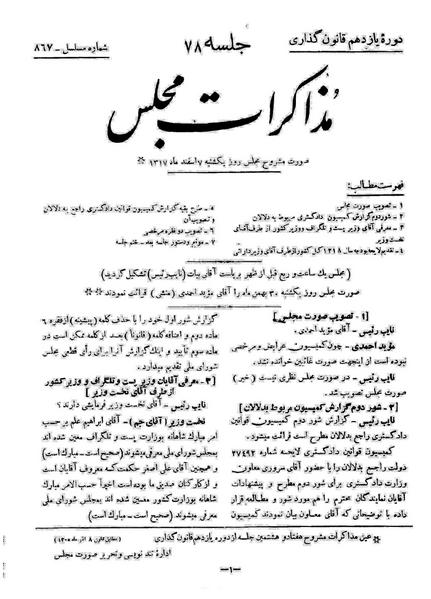 دورۀ یازدهم قانون گذاری
جلسه ۷۸
شماره مسلسل - ۸۶۷
مذاکرات مجلس
صورت مشروح مجلس روز یکشنبه ۷ اسفند ماه ۱۳۱۷ **
فهرست مطالب:
۱ - تصویب صورت مجلس
۲ - شور دوم گزارش کمیسیون دادگستری مربوط به دلالان
۳ - معرفی آقای وزیر پست و تلگراف و وزیر کشور از طرف آقای
نخست وزیر
۴ - تقدیم لایحه بودجه سال ۱۳۱۸ کل کشور از طرف آقای وزیر دارائی
۵ - طرح بقیه گزارش کمیسیون قوانین دادگستری راجع به دلالان
و تصویب آن
۶ - تصویب دو فقره مرخصی
۷ - موقع و دستور جلسه بعد - ختم جلسه
(مجلس یک ساعت و ربع قبل از ظهر بریاست آقای بیات (نایب رئیس) تشکیل گردید)
صورت مجلس روز یکشنبه ۳۰ بهمن ماه را آقای مؤید احمدی (منشی) قرائت نمودند **
[ ۱ - تصویب صورت مجلس ]
نایب رئیس - آقای مؤید احمدی.
مؤید احمدی - چون کمیسیون عرایض و مرخصی
نبوده است از اینجهت صورت غائبین خوانده نشد.
نایب رئیس - در صورت مجلس نظری نیست (خیر)
صورت مجلس تصویب شد.
[ ۲ - شور دوم گزارش کمیسیون مربوط بدلالان ]
نایب رئیس - گزارش شور دوم کمیسیون قوانین
دادگستری راجع بدلالان مطرح است قرائت میشود.
کمیسیون قوانین دادگستری لایحه شماره ۲۷۴۹۲
دولت راجع بدلالان را با حضور آقای سروری معاون
وزارت دادگستری برای شور دوم مطرح و پیشنهادات
آقایان نمایندگان محترم را هم مورد شور و مطالعه قرار
داده با توضیحاتی که آقای معاون بیان نمودند کمیسیون
گزارش شور اول خود را با حذف کلمه (پیشینه) از فقره ۶
ماده دوم و اضافه کلمه (قانوناً) بعد از کلمه ممکن است در
ماده سوم تأیید و اینک گزارش آنرا برای رأی قطعی مجلس
شورای ملی تقدیم میدارد.
[ ۳ - معرفی آقایان وزیر پست و تلگراف و وزیر کشور
از طرف آقای نخست وزیر ]
نایب رئیس - آقای نخست وزیر فرمایشی دارند؟
نخست وزیر (آقای جم) - آقای ابراهیم علم بر حسب
امر مبارک شاهانه بوزارت پست و تلگراف معین شده اند
بمجلس شورای ملی معرفی میشوند (صحیح است - مبارک است)
و همچنین آقای علی اصغر حکمت که معروف آقایان است
و از کارکنان صدیق ما بوده است اخیراً حسب الامر مبارک
شاهانه بوزارت کشور معین شده اند بمجلس شورای ملی
معرفی میشوند (صحیح است - مبارک است)
** عین مذاکرات مشروح هفتاد و هشتمین جلسه از دوره یازدهم قانون گذاری
اداره تند نویسی و تحریر صورت مجلس
-۱-